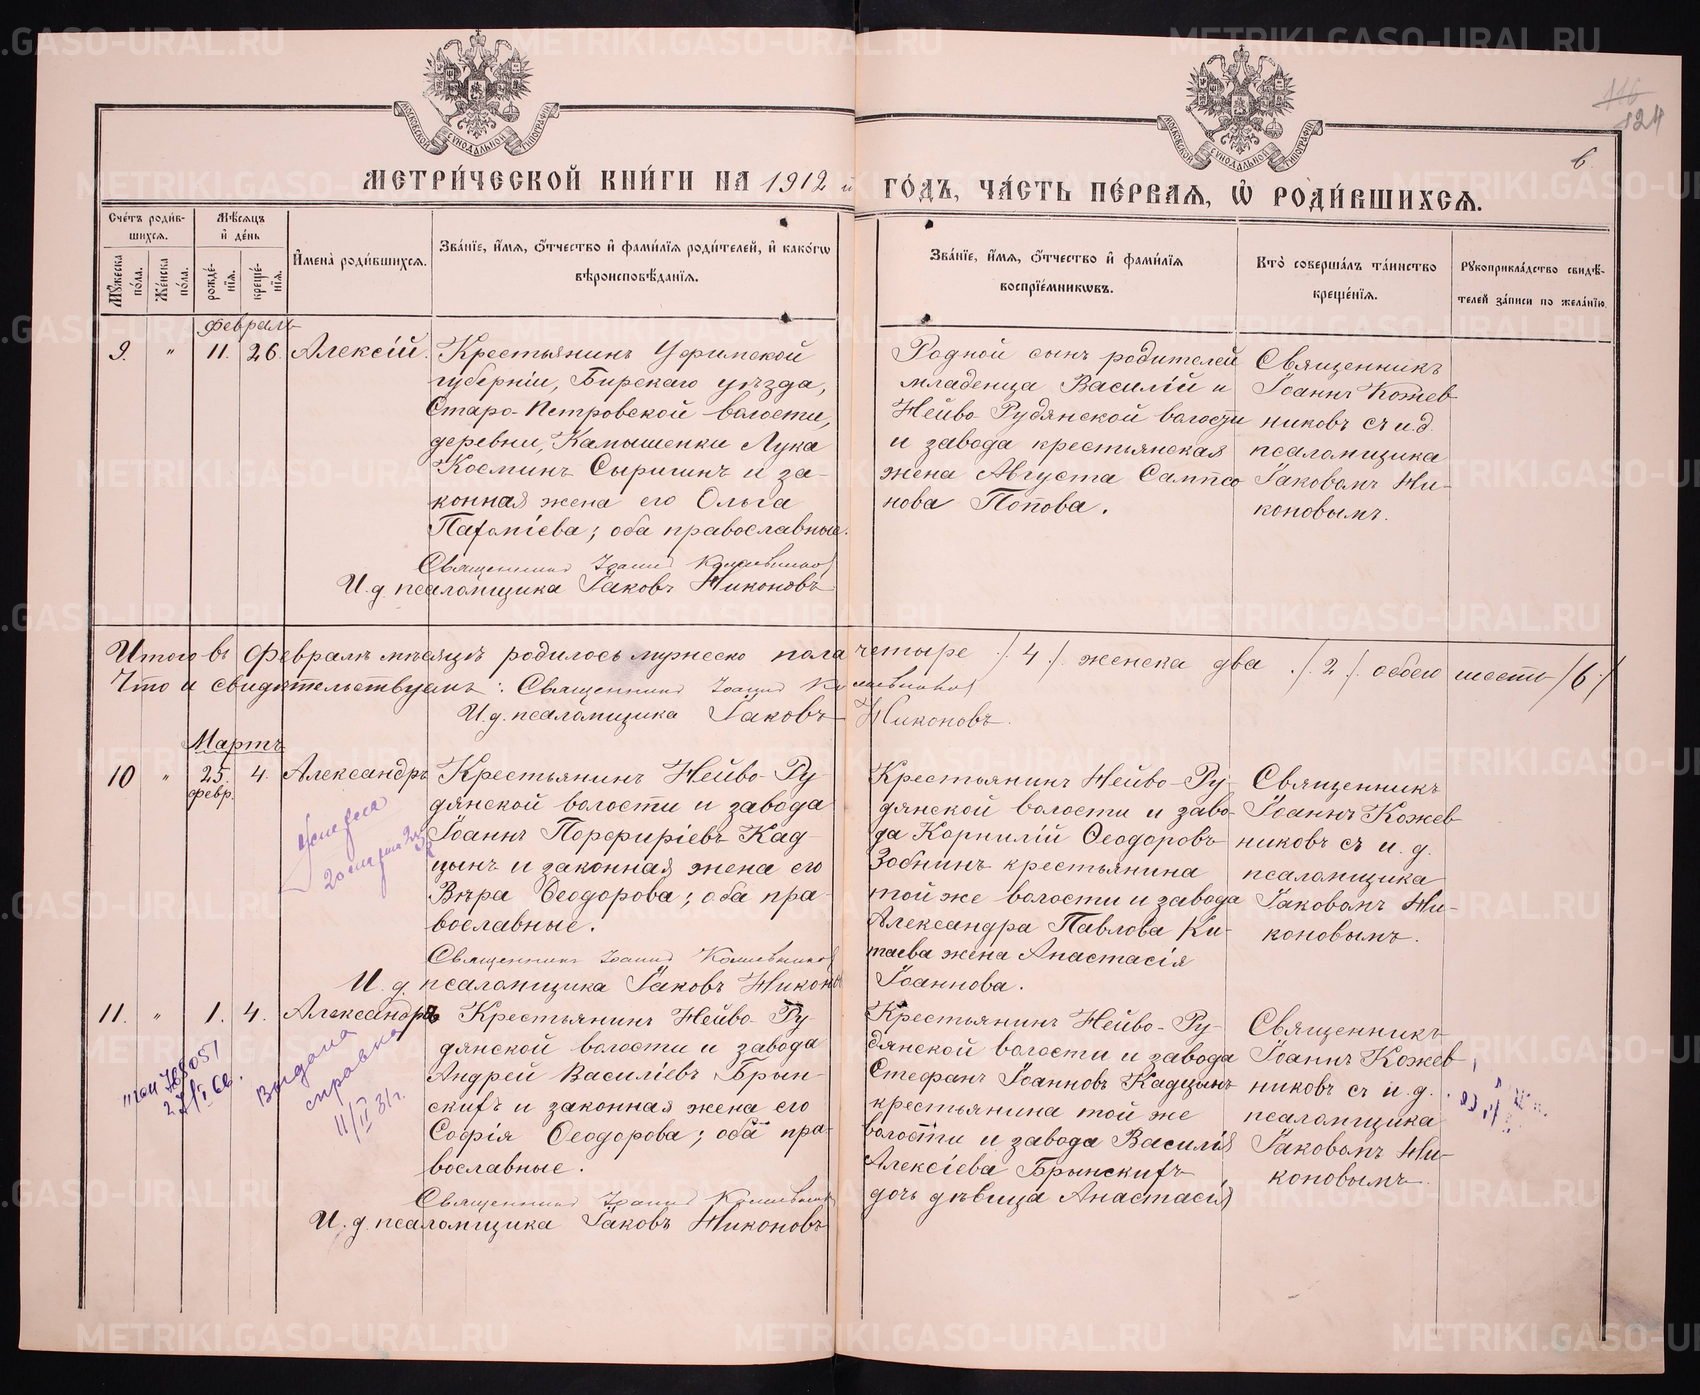 МЕТРИ́ЧЕСКОЙ КНИ́ГИ НА 1912 й ГО́ДЪ, ЧА́СТЬ ПЕ́РВАЯ, Ѡ҆ РОДИ́ВШИХСЯ.
МОСКОВСКОЙ СѴНОДАЛЬНОЙ ТИПОГРАФІИ
МОСКОВСКОЙ СѴНОДАЛЬНОЙ ТИПОГРАФІИ
116
124
6
Сче́тъ роди́в-
шихся.
Мꙋ́жеска по́ла.
Же́нска по́ла.
Мѣ́сяцъ
и҆ де́нь
рожде́-
нїя.
креще́-
нїя.
И҆мена̀ роди́вшихся.
Зва́нїе, и҆́мя, ѻ҆́тчество и҆ фами́лїя роди́телей, и҆ како́гѡ
вѣроисповѣ́данїя.
Зва́нїе, и҆́мя, ѻ҆́тчество и҆ фами́лїя
воспрїе́мникѡвъ.
Кто̀ соверша́лъ та́инство
креще́нїя.
Рꙋкоприкла́дство свидѣ́-
телей за́писи по жела́нїю.
Февраль
9. " 11. 26. Алексій.
Крестьянинъ Уфимской
губерніи, Бирскаго уѣзда,
Старо-Петровской волости,
деревни, Камышенки Лука
Косминъ Сыригинъ и за-
конная жена его Ольга
Парѳеніева; оба православные.
Священникъ Іоаннъ Кожевниковъ
И. д. псаломщика Іаковъ Никоновъ
Родной сынъ родителей
младенца Василій и
Нейво Рудянской волости
и завода крестьянская
жена Августа Сампсо
нова Попова.
Священникъ
Іоаннъ Кожев
никовъ съ и.д.
псаломщика
Іаковомъ Ни-
коновымъ.
Итого въ Февралѣ мѣсяцѣ родилось мужеско пола четыре /4/. женска два ./2/. обоего шесть /6/
Что и свидѣтельствуемъ: Священникъ Іоаннъ Кожевниковъ
И.д. псаломщика Іаковъ Никоновъ.
Мартъ
10 " 25. февр. 4. Александръ
Крестьянинъ Нейво-Ру-
дянской волости и завода
Іоаннъ Порфиріевъ Кад-
цынъ и законная жена его
Вѣра Ѳеодорова; оба пра-
вославные.
Священникъ Іоаннъ Кожевниковъ
И. д. псаломщика Іаковъ Никонов
Крестьянинъ Нейво-Ру-
дянской волости и заво-
да Корнилій Ѳеодоровъ
Зобнинъ крестьянина
той же волости и завода
Александра Павлова Ки-
таева жена Анастасія
Іоаннова.
Священникъ
Іоаннъ Кожев
никовъ съ и. д.
псаломщика
Іаковомъ Ни-
коновымъ.
11. " 1. 4. Александръ
Крестьянинъ Нейво-Ру-
дянской волости и завода
Андрей Василіевъ Брын-
скихъ и законная жена его
Софія Ѳеодорова; оба пра-
вославные.
Священникъ Іоаннъ Кожевниковъ
И. д. псаломщика Іаковъ Никоновъ
Выдана
справка
11/II 31г.
Крестьянинъ Нейво-Ру-
дянской волости и завода
Стефанъ Іоанновъ Кадцынъ
крестьянина той же
волости и завода Василія
Алексіева Брынскихъ
дочь дѣвица Анастасія
Священникъ
Іоаннъ Кожев
никовъ съ и.д.
псаломщика
Іаковомъ Ни-
коновымъ.
METRIKI.GASO-URAL.RU